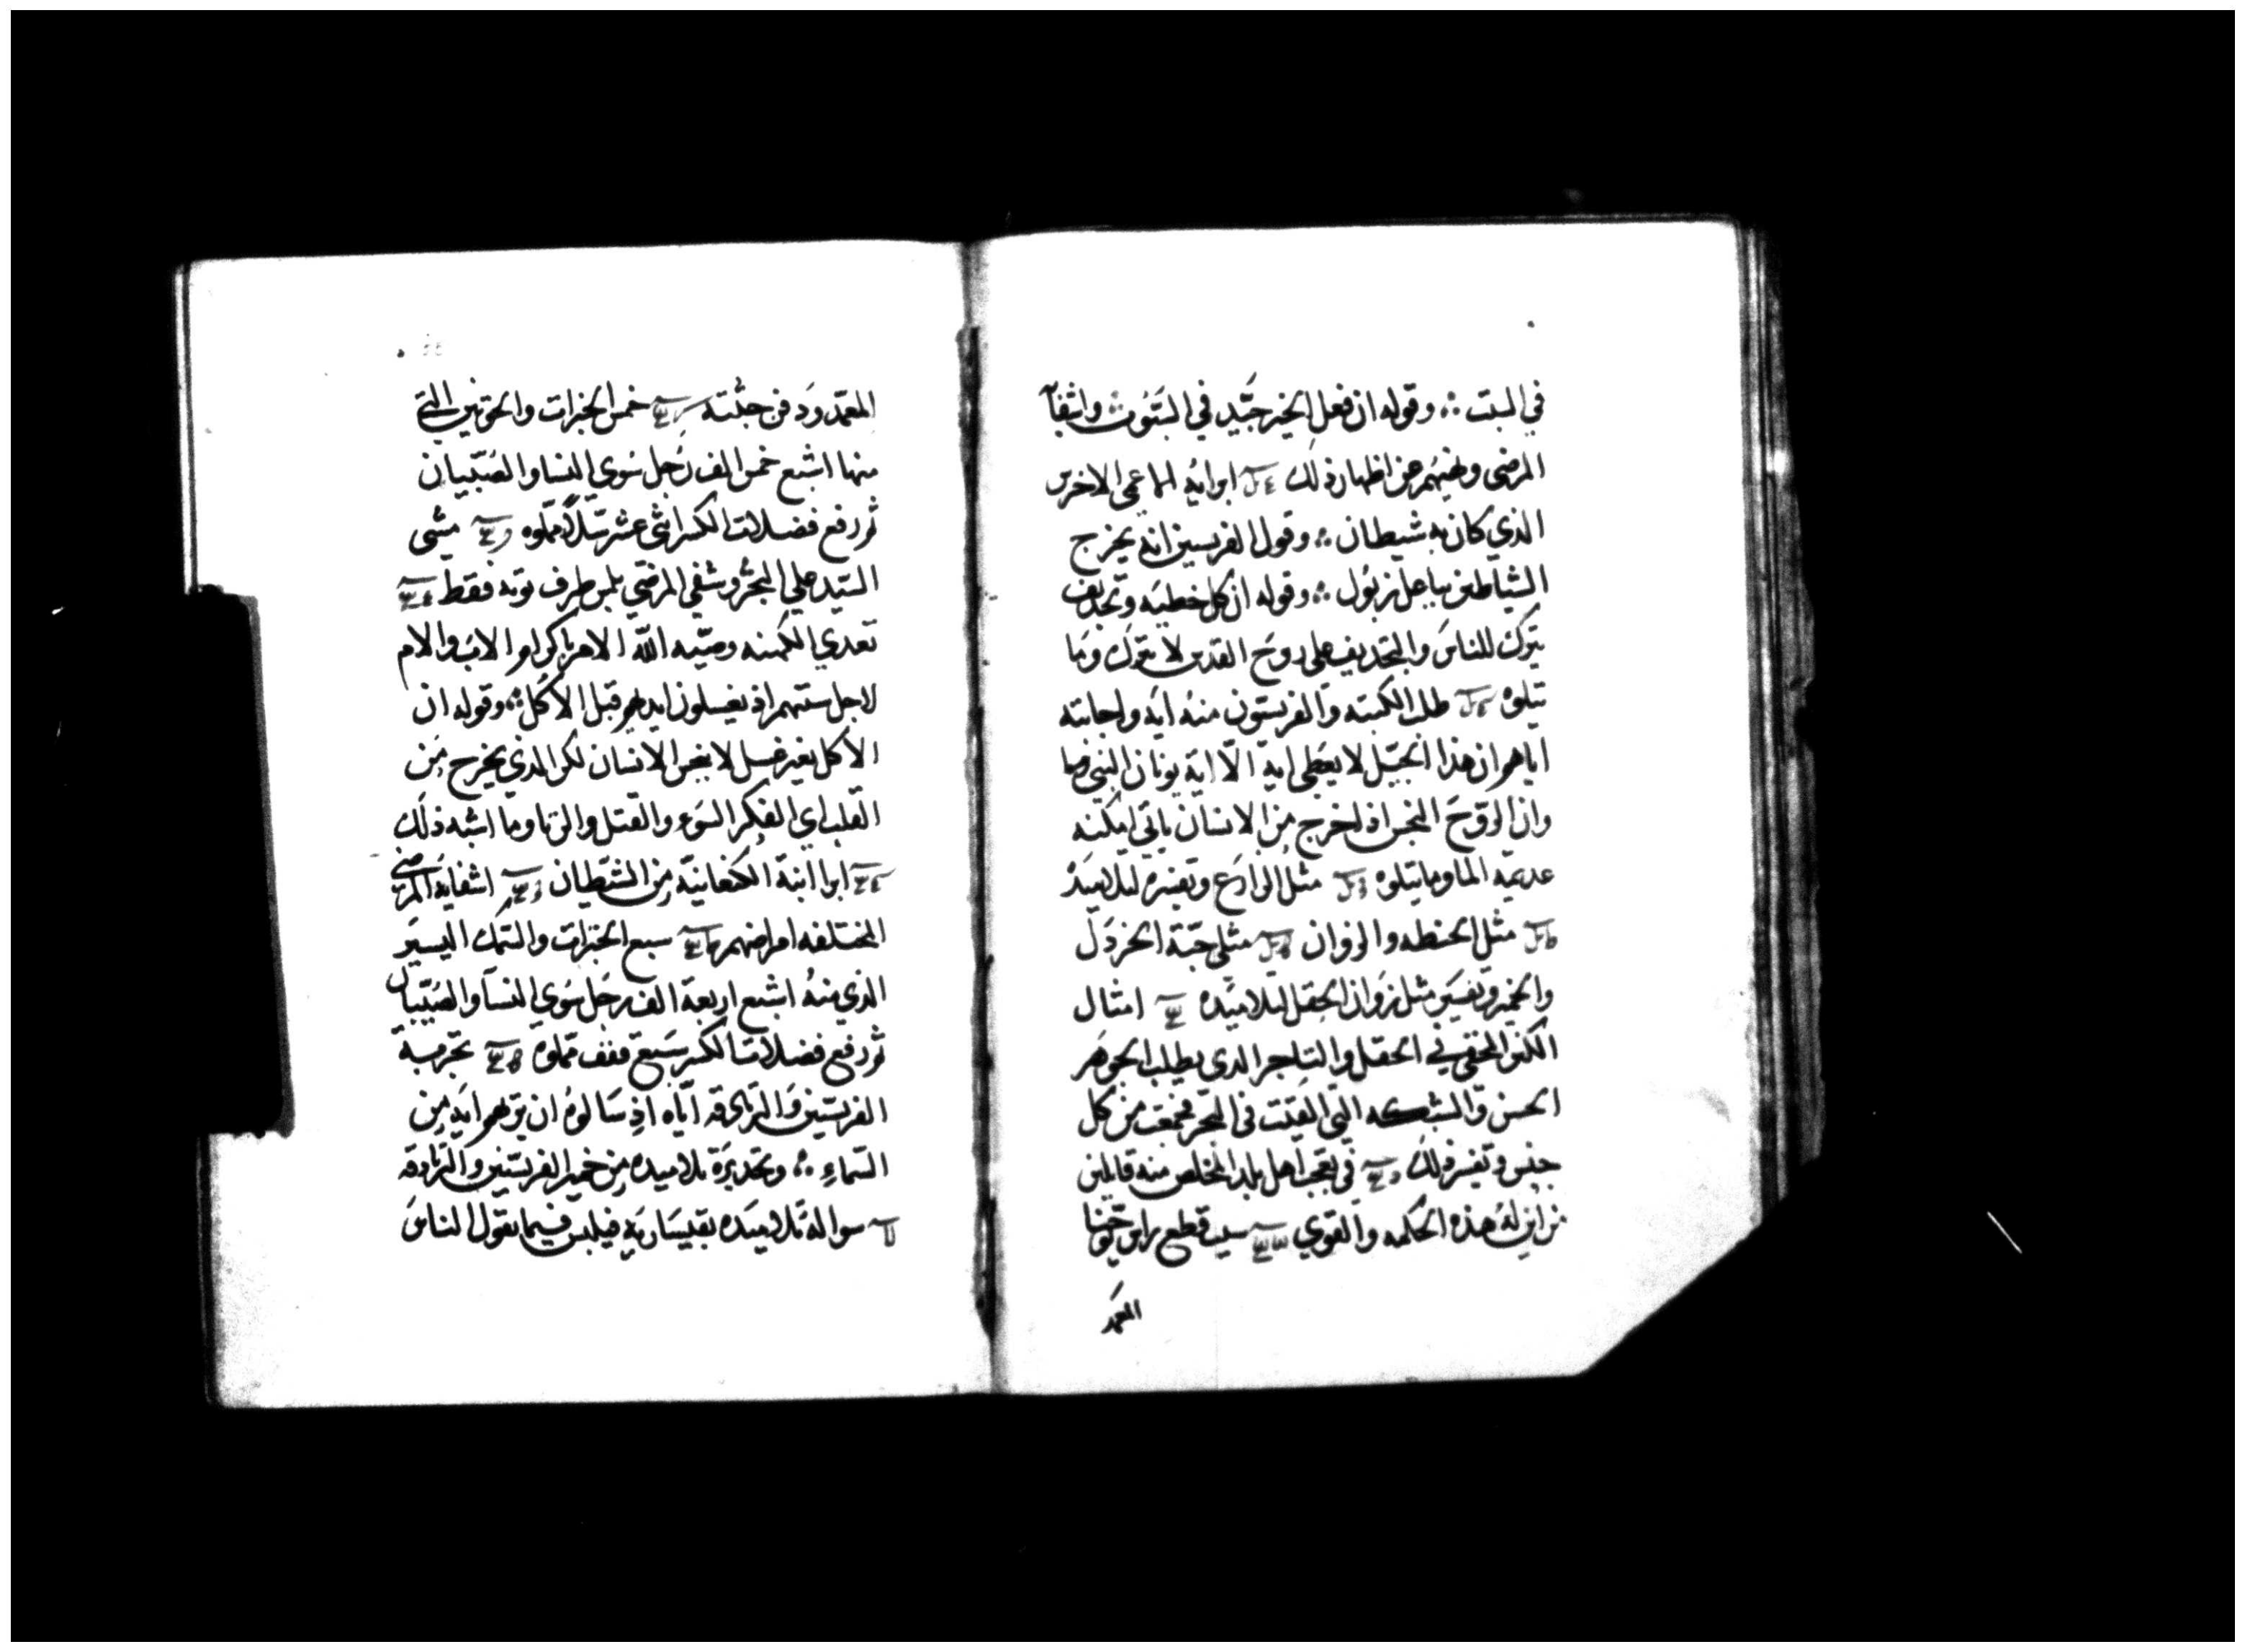 في السبت ؞ وقوله ان فعل الخير جَيّد في السَبَوُت واشفآ
المرضي ونهيهُم عن اظهار ذلك ابرايهِ الاعمي الاخرس
الذي كان به شيطان ؞ وقول الفريسين انه يخرج
الشياطين بباعل زبوُل ؞ وقوله ان كل خطيَه وتجديف
يترك للناسَ والتجديف علي روحَ القدس لا يترَك ومَا
يتلوه طلب الكتبه والفريسّون منه ايه واجابته
اياهم ان هذا الجيَل لا يعَطي ايه الّا اية يونان النبي
وان الروَحَ النجس اذا خرج مِن الانسان ياتي امكنه
عديمَه الما وما يتلوه مثل الزارَع وتفسيره لتلاميَذه
مثل الحنطه والزوان مثل حَبّة الخردَل
والخمير وتفسيَر مثل زوَان الحقل لتلاميَذه امثال
الكنز المخفي في الحقل والتاجر الدي يطلب الجوهَر
الحسن وّالشبكه التي القيَت في البحَر فجمعَت من كل
جنس وتفسير ذلك في تعَجب اهل بلد المخلص منه قايلين
من اين لهُ هذه الحكمه والقوي سبب قطع راس يوَحنا
المعَمد
المعمّد ودَفن جثته خمس الخبزات والحوتين التي
منها اشبع خمس الف رَجل سَوي النسا والصَبيان
ثم رفع فضلات الكسر اثني عشر سَلاً مملوه مشي
السَيّد علي البحَر وشفي المرضي بلمس طرف ثوبه فقط
تعدي الكهنه وصيّه اللّه الامر باكرام الابَ والام
لاجل سنتهم اذ يغسلون ايديهم قبل الاَكل ؞ وقوله ان
الاَكل بغير غسل لا ينجس الانسان لكن الذي يخرج مِن
القلب اي الفِكر السَوء والقتل والزنا وما اشبه ذلك
ابرا ابنة الكنعانيّه مِن الشيَطان اشفايه المرضي
المختلفه امراضهم سبع الخبزات والسَمك اليسيَر
الذي منهُ اشبع اربعة الف رجَل سَوي النسآ والصَبيان
ثم رفع فضلات الكسر سَبعَ قفف مملوه تجربة
الفريسّين وَالزنادقه ايّاه اذ سَالوهُ ان يريهم ايه مِن
السَماءِ ؞ وتحذيرَه تلاميذه مِن خمير الفريسّين والزنادقه
سواله تلاميَذه بقيسَاريَهِ فيلبس فيما يقول الناسَ